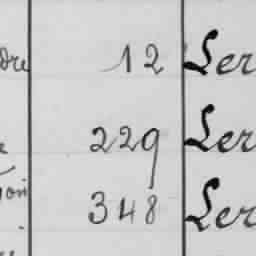 dre 12 Ler
229 Ler
348 Ler